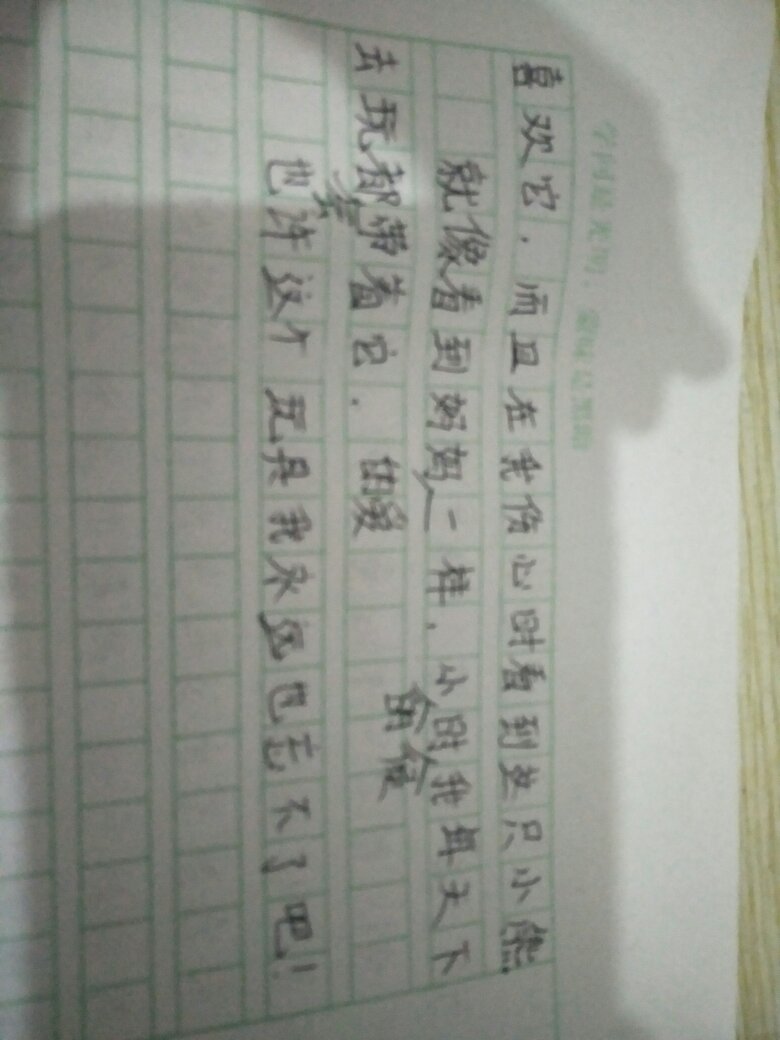 喜欢它，而且在我伤心时看到这只小熊
就像看到妈妈一样，小时候我每天下
去玩都要带着它．
也许这个玩具我永远也忘不了吧！